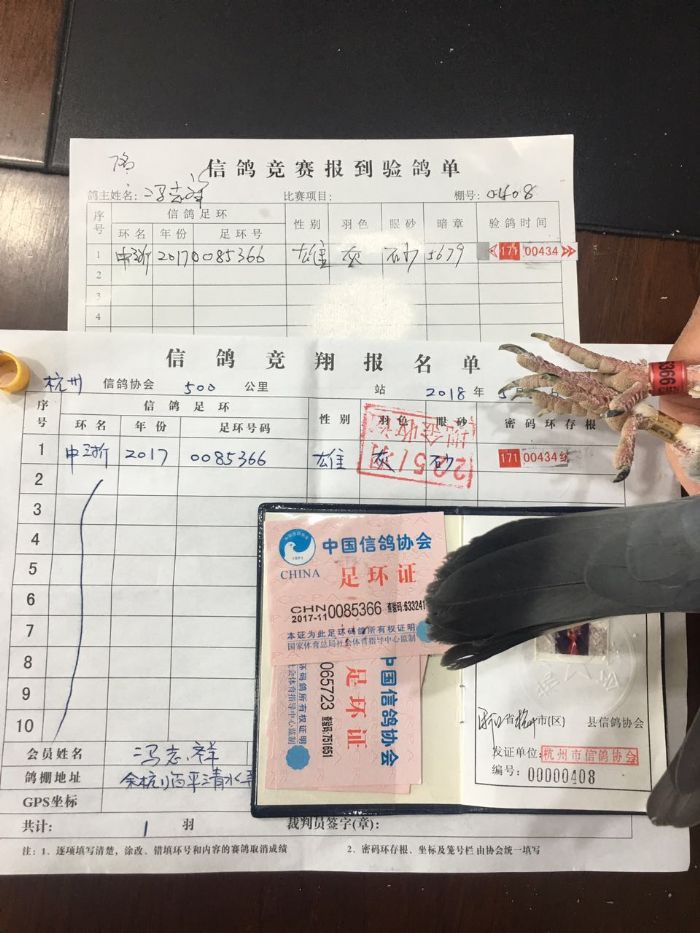 信鸽竞赛报到验鸽单
鸽主姓名: 冯志祥 比赛项目: 棚号: 0408
序号 信鸽足环 性别 羽色 眼砂 暗章 验鸽时间
环名 年份 足环号
1 中浙 2017 0085366 雄 灰 砂 5679 171 00434
2
3
4
信鸽竞翔报名单
杭州 信鸽协会 500 公里 站 2018 年 5
序号 信鸽足环 性别 羽色 眼砂 密码环存根
环名 年份 足环号码
1 中浙 2017 0085366 雄 灰 砂 171 00434
2
3
4
5
6
7
8
9
10
会员姓名 冯志祥
鸽棚地址
GPS坐标
共计: 1 羽 裁判员签字(章):
注: 1、逐项填写清楚,涂改、错填环号和内容的赛鸽取消成绩 2、密码环存根、坐标及笼号栏由协会统一填写
中国信鸽协会
CHINA 足环证
CHN 2017-11 0085366 查验码:633241
本证为此足环码鸽所有权证明
国家体育总局社会体育指导中心监制
中国信鸽协会
足环证
065723 查验码:751651
环码鸽所有权证明
社会体育指导中心监制
浙江省杭州市(区) 县信鸽协会
发证单位: 杭州市信鸽协会
编号: 00000408
366